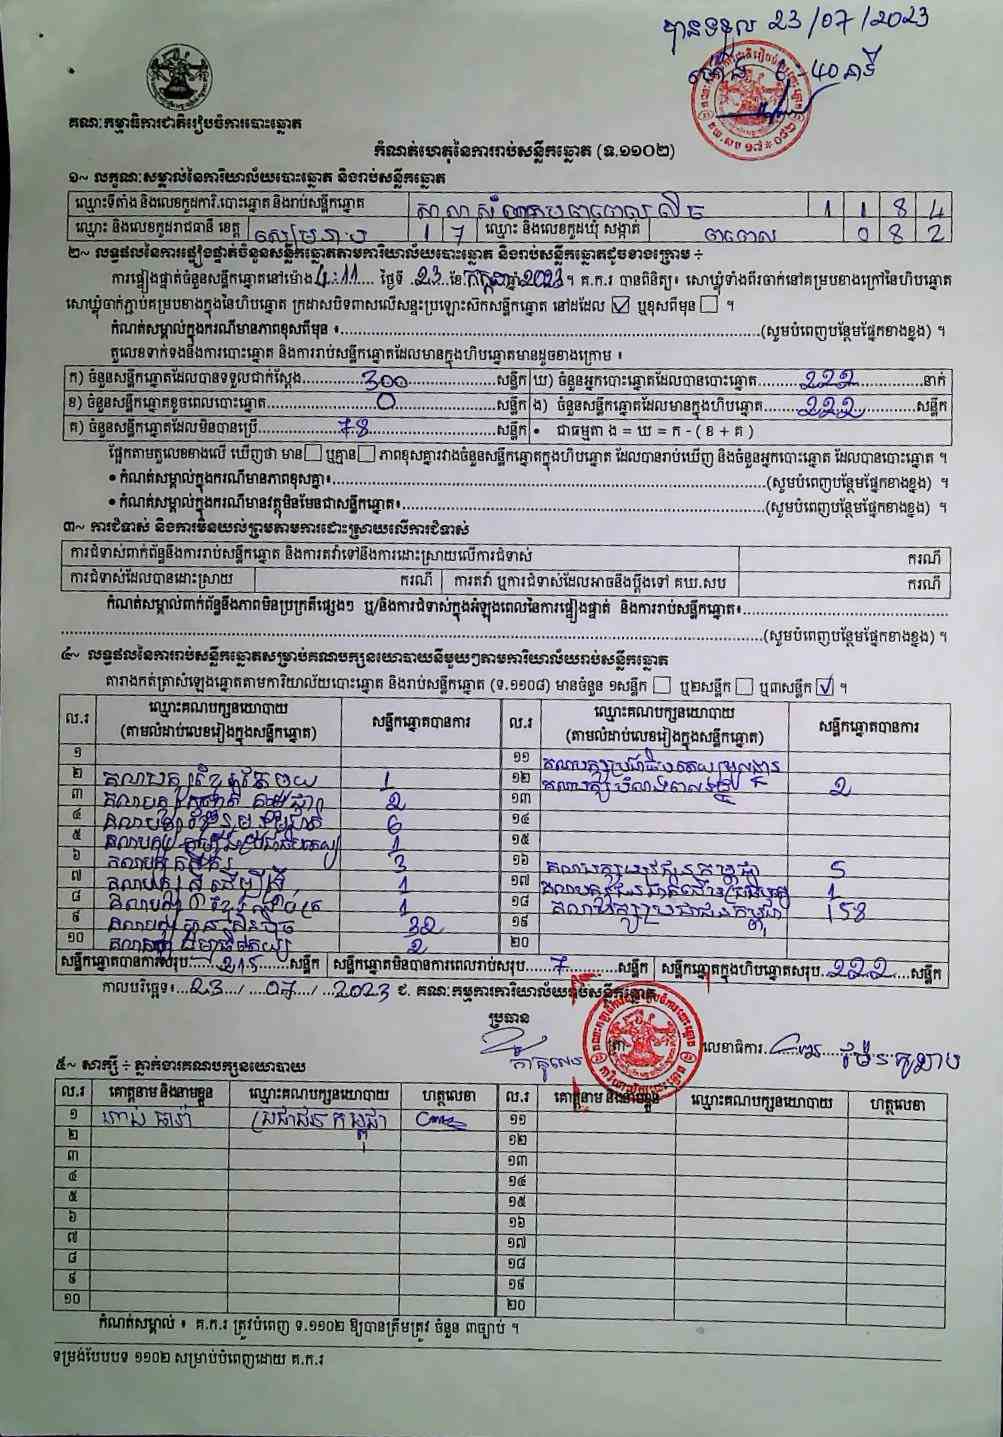 បានទទួល 23/07/2023
គណៈកម្មាធិការជាតិរៀបចំការបោះឆ្នោត
កំណត់ហេតុនៃការរាប់សន្លឹកឆ្នោត (ទ.១១០២)
១~ លក្ខណៈសម្គាល់នៃការិយាល័យបោះឆ្នោត និងរាប់សន្លឹកឆ្នោត
ឈ្មោះទីតាំង និងលេខកូដការិ.បោះឆ្នោត និងរាប់សន្លឹកឆ្នោត 1 1 8 4
ឈ្មោះ និងលេខកូដរាជធានី ខេត្ត សៀមរាប 1 7 ឈ្មោះ និងលេខកូដឃុំ សង្កាត់ 0 8 2
២~ លទ្ធផលនៃការផ្ទៀងផ្ទាត់ចំនួនសន្លឹកឆ្នោតតាមការិយាល័យបោះឆ្នោត និងរាប់សន្លឹកឆ្នោតដូចខាងក្រោម ÷
ការផ្ទៀងផ្ទាត់ចំនួនសន្លឹកឆ្នោតនៅម៉ោង 4:11 ថ្ងៃទី 23 ខែ កក្កដា ឆ្នាំ 2023 ។ គ.ក.រ បានពិនិត្យ៖ សោឃ្លុំទាំងពីរចាក់នៅគម្របខាងក្រៅនៃហិបឆ្នោត
សោឃ្លុំចាក់ភ្ជាប់គម្របខាងក្នុងនៃហិបឆ្នោត ក្រដាសបិទពាសលើសន្ទះប្រឡោះសឹកសន្លឹកឆ្នោត នៅដដែល ☑ ឬខុសពីមុន ☐ ។
កំណត់សម្គាល់ក្នុងករណីមានភាពខុសពីមុន ៖ (សូមបំពេញបន្ថែមផ្នែកខាងខ្នង) ។
តួលេខទាក់ទងនឹងការបោះឆ្នោត និងការរាប់សន្លឹកឆ្នោតដែលមានក្នុងហិបឆ្នោតមានដូចខាងក្រោម ៖
ក) ចំនួនសន្លឹកឆ្នោតដែលបានទទួលជាក់ស្តែង 300 សន្លឹក ឃ) ចំនួនអ្នកបោះឆ្នោតដែលបានបោះឆ្នោត 222 នាក់
ខ) ចំនួនសន្លឹកឆ្នោតខូចពេលបោះឆ្នោត 0 សន្លឹក ង) ចំនួនសន្លឹកឆ្នោតដែលមានក្នុងហិបឆ្នោត 222 សន្លឹក
គ) ចំនួនសន្លឹកឆ្នោតដែលមិនបានប្រើ 78 សន្លឹក • ជាធម្មតា ង = ឃ = ក - ( ខ + គ )
ផ្អែកតាមតួលេខខាងលើ ឃើញថា មាន ☐ ឬគ្មាន ☐ ភាពខុសគ្នារវាងចំនួនសន្លឹកឆ្នោតក្នុងហិបឆ្នោត ដែលបានរាប់ឃើញ និងចំនួនអ្នកបោះឆ្នោត ដែលបានបោះឆ្នោត ។
• កំណត់សម្គាល់ក្នុងករណីមានភាពខុសគ្នា៖ (សូមបំពេញបន្ថែមផ្នែកខាងខ្នង) ។
• កំណត់សម្គាល់ក្នុងករណីមានវត្ថុមិនមែនជាសន្លឹកឆ្នោត៖ (សូមបំពេញបន្ថែមផ្នែកខាងខ្នង) ។
៣~ ការជំទាស់ និងការមិនយល់ព្រមតាមការដោះស្រាយលើការជំទាស់
ការជំទាស់ពាក់ព័ន្ធនឹងការរាប់សន្លឹកឆ្នោត និងការតវ៉ាទៅនឹងការដោះស្រាយលើការជំទាស់ ករណី
ការជំទាស់ដែលបានដោះស្រាយ ករណី ការតវ៉ា ឬការជំទាស់ដែលអាចនឹងប្តឹងទៅ គឃ.សប ករណី
កំណត់សម្គាល់ពាក់ព័ន្ធនឹងភាពមិនប្រក្រតីផ្សេងៗ ឬ/និងការជំទាស់ក្នុងអំឡុងពេលនៃការផ្ទៀងផ្ទាត់ និងការរាប់សន្លឹកឆ្នោត៖
(សូមបំពេញបន្ថែមផ្នែកខាងខ្នង) ។
៤~ លទ្ធផលនៃការរាប់សន្លឹកឆ្នោតសម្រាប់គណបក្សនយោបាយនីមួយៗតាមការិយាល័យរាប់សន្លឹកឆ្នោត
តារាងកត់ត្រាសំឡេងឆ្នោតតាមការិយាល័យបោះឆ្នោត និងរាប់សន្លឹកឆ្នោត (ទ.១១០៨) មានចំនួន ១សន្លឹក ☐ ឬ២សន្លឹក ☐ ឬ៣សន្លឹក ☑ ។
ល.រ ឈ្មោះគណបក្សនយោបាយ (តាមលំដាប់លេខរៀងក្នុងសន្លឹកឆ្នោត) សន្លឹកឆ្នោតបានការ ល.រ ឈ្មោះគណបក្សនយោបាយ (តាមលំដាប់លេខរៀងក្នុងសន្លឹកឆ្នោត) សន្លឹកឆ្នោតបានការ
១ ១១ គណបក្សប្រជាធិបតេយ្យមូលដ្ឋាន
២ 1 ១២ 2
៣ 2 ១៣
៤ 6 ១៤
៥ 1 ១៥
៦ 3 ១៦ 5
៧ 1 ១៧ 1
៨ 1 ១៨ គណបក្សប្រជាជនកម្ពុជា 158
៩ 32 ១៩
១០ 2 ២០
សន្លឹកឆ្នោតបានការសរុប 215 សន្លឹក សន្លឹកឆ្នោតមិនបានការពេលរាប់សរុប 7 សន្លឹក សន្លឹកឆ្នោតក្នុងហិបឆ្នោតសរុប 222 សន្លឹក
កាលបរិច្ឆេទ៖ 23 / 07 / 2023 ជ. គណៈកម្មការការិយាល័យរាប់សន្លឹកឆ្នោត
ប្រធាន
លេខាធិការ
៥~ សាក្សី ÷ ភ្នាក់ងារគណបក្សនយោបាយ
ល.រ គោត្តនាម និងនាមខ្លួន ឈ្មោះគណបក្សនយោបាយ ហត្ថលេខា ល.រ គោត្តនាម និងនាមខ្លួន ឈ្មោះគណបក្សនយោបាយ ហត្ថលេខា
១ ប្រជាជនកម្ពុជា ១១
២ ១២
៣ ១៣
៤ ១៤
៥ ១៥
៦ ១៦
៧ ១៧
៨ ១៨
៩ ១៩
១០ ២០
កំណត់សម្គាល់ ៖ គ.ក.រ ត្រូវបំពេញ ទ.១១០២ ឱ្យបានត្រឹមត្រូវ ចំនួន ៣ច្បាប់ ។
ទម្រង់បែបបទ ១១០២ សម្រាប់បំពេញដោយ គ.ក.រ